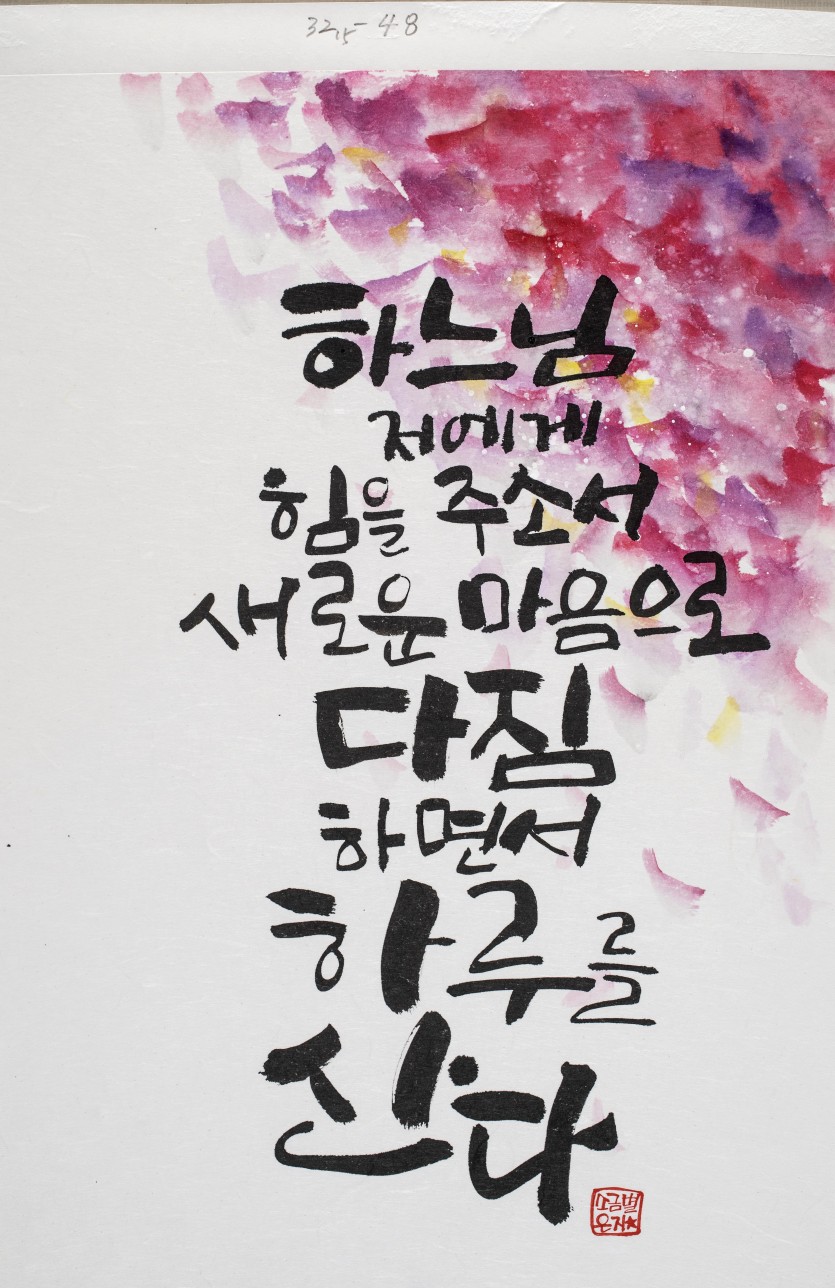 32,5-48
하느님
저에게
힘을 주소서
새로운 마음으로
다짐
하면서
하루를
산다
소금별
은지